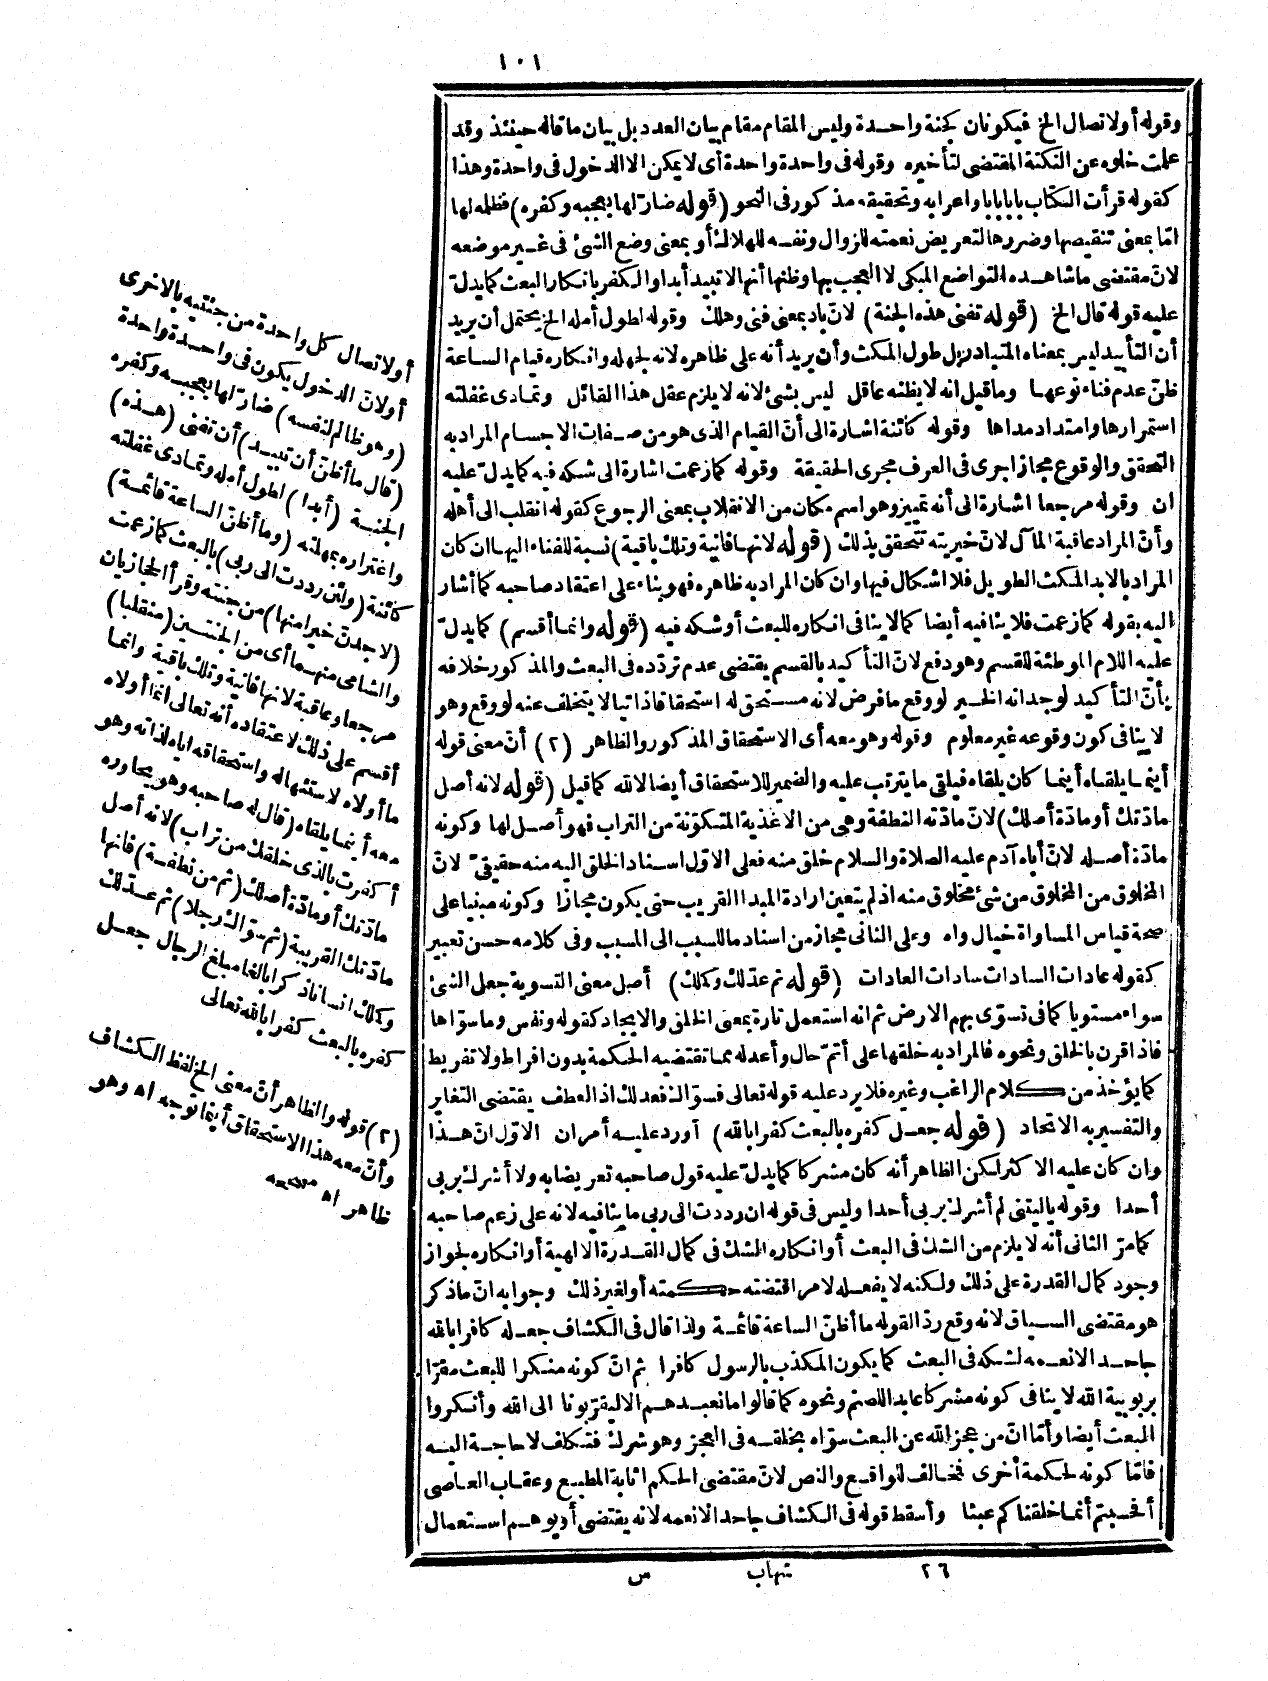 ١٠١
وقوله أو لاتصال الخ فيكونان كجنة واحدة وليس المقام مقام بيان العدد بل بيان ما قاله حينئذ وقد
علمت خلوه عن النكتة المقتضى لتأخيره وقوله فى واحدة واحدة أى لا يمكن الا الدخول فى واحدة وهذا
كقوله قرأت الكتاب بابا بابا واعرابه وتحقيقه مذكور فى النحو (قوله ضار لها بعجبه وكفره) فظلمه لها
امّا بمعنى تنقيصها وضررها لتعريض نعمته للزوال ونفسه للهلاك أو بمعنى وضع الشئ فى غير موضعه
لانّ مقتضى ما شاهده التواضع المبكى لا العجب بها وظنها أنها لا تبيد أبدا والكفر بانكار البعث كما يدلّ
عليه قوله قال الخ (قوله تفنى هذه الجنة) لانّ باد بمعنى فنى وهلك وقوله لطول أمله الخ يحتمل أن يريد
أن التأبيد ليس بمعناه المتبادر بل طول المكث وأن يريد أنه على ظاهره لانه لجهله وانكاره قيام الساعة
ظنّ عدم فناء نوعها وما قيل انه لا يظنه عاقل ليس بشئ لانه لا يلزم عقل هذا القائل وتمادى غفلته
استمرارها وامتداد مداها وقوله كائنة اشارة الى أنّ القيام الذى هو من صفات الاجسام المراد به
التحقق والوقوع مجازا جرى فى العرف مجرى الحقيقة وقوله كما زعمت اشارة الى شكه فيه كما يدلّ عليه
ان وقوله مرجعا اشارة الى أنه تمييز وهو اسم مكان من الانقلاب بمعنى الرجوع كقوله انقلب الى أهله
وأنّ المراد عاقبة المآل لانّ خيريته تتحقق بذلك (قوله لانها فانية وتلك باقية) نسبة للفناء اليها ان كان
المراد بالابد المكث الطويل فلا اشكال فيها وان كان المراد به ظاهره فهو بناء على اعتقاد صاحبه كما أشار
اليه بقوله كما زعمت فلا ينافيه أيضا كما لا ينافى انكاره للبعث أو شكه فيه (قوله وانما أقسم) كما يدلّ
عليه اللام الموطئة للقسم وهو دفع لانّ التأكيد بالقسم يقتضى عدم تردّده فى البعث والمذكور خلافه
بأنّ التأكيد لوجدانه الخير لو وقع ما فرض لانه مستحق له استحقاقا ذاتيا لا يتخلف عنه لو وقع وهو
لا ينافى كون وقوعه غير معلوم وقوله وهو معه أى الاستحقاق المذكور والظاهر (٢) أنّ معنى قوله
أينما يلقاه أينما كان يلقاه فيلقى ما يترتب عليه والضمير للاستحقاق أيضا لا لله كما قيل (قوله لانه أصل
مادّتك أو مادّة أصلك) لانّ مادّته النطفة وهى من الاغذية المتكوّنة من التراب فهو أصل لها وكونه
مادّة أصله لانّ أباه آدم عليه الصلاة والسلام خلق منه فعلى الاوّل اسناد الخلق اليه منه حقيقىّ لانّ
المخلوق من المخلوق من شئ مخلوق منه اذ لم يتعين ارادة المبدا القريب حتى يكون مجازا وكونه مبنيا على
صحة قياس المساواة خيال واه وعلى الثانى مجاز من اسناد ما للسبب الى المسبب وفى كلامه حسن تعبير
كقوله عادات السادات سادات العادات (قوله ثم عدلك وكملك) أصل معنى التسوية جعل الشئ
سواء مستويا كما فى تسوّى بهم الارض ثم انه استعمل تارة بمعنى الخلق والايجاد كقوله ونفس وما سوّاها
فاذا قرن بالخلق ونحوه فالمراد به خلقها على أتمّ حال وأعدله مما تقتضيه الحكمة بدون افراط ولا تفريط
كما يؤخذ من كلام الراغب وغيره فلا يرد عليه قوله تعالى فسوّاك فعدلك اذ العطف يقتضى التغاير
والتفسير به الاتحاد (قوله جعل كفره بالبعث كفرا بالله) أورد عليه أمران الاوّل انّ هذا
وان كان عليه الاكثر لكن الظاهر أنه كان مشركا كما يدلّ عليه قول صاحبه تعريضا به ولا أشرك بربى
أحدا وقوله يا ليتنى لم أشرك بربى أحدا وليس فى قوله ان رددت الى ربى ما ينافيه لانه على زعم صاحبه
كما مرّ الثانى أنه لا يلزم من الشك فى البعث أو انكاره الشك فى كمال القدرة الالهية أو انكاره لجواز
وجود كمال القدرة على ذلك ولكنه لا يفعله لامر اقتضته حكمته أو لغير ذلك وجوابه انّ ما ذكر
هو مقتضى السياق لانه وقع ردّا لقوله ما أظنّ الساعة قائمة ولذا قال فى الكشاف جعله كافرا بالله
جاحدا لانعمه لشكه فى البعث كما يكون المكذب بالرسول كافرا ثم انّ كونه منكرا للبعث مقرّا
بربوبية الله لا ينافى كونه مشركا عابدا للصنم ونحوه كما قالوا ما نعبدهم الا ليقرّبونا الى الله وأنكروا
البعث أيضا وأمّا انّ من عجز الله عن البعث سوّاه بخلقه فى العجز وهو شرك فتكلف لا حاجة اليه
فامّا كونه لحكمة أخرى فمخالف للواقع والنص لانّ مقتضى الحكم اثابة المطيع وعقاب العاصى
أفحسبتم أنما خلقناكم عبثا وأسقط قوله فى الكشاف جاحدا لانعمه لانه يقتضى أو يوهم استعمال
أو لاتصال كل واحدة من جنتيه بالاخرى
أو لانّ الدخول يكون فى واحدة واحدة
(وهو ظالم لنفسه) ضارّ لها بعجبه وكفره
(قال ما أظنّ أن تبيد) أن تفنى (هذه)
الجنة (أبدا) لطول أمله وتمادى غفلته
واغتراره بمهلته (وما أظنّ الساعة قائمة)
كائنة (ولئن رددت الى ربى) بالبعث كما زعمت
(لاجدنّ خيرا منها) من جنته وقرأ الحجازيان
والشامى منهما أى من الجنتين (منقلبا)
مرجعا وعاقبة لانها فانية وتلك باقية وانما
أقسم على ذلك لاعتقاده أنه تعالى انما أولاه
ما أولاه لاستئهاله واستحقاقه اياه لذاته وهو
معه أينما يلقاه (قال له صاحبه وهو يحاوره
أكفرت بالذى خلقك من تراب) لانه أصل
مادّتك أو مادّة أصلك (ثم من نطفة) فانها
مادّتك القريبة (ثم سوّاك رجلا) ثم عدلك
وكملك انسانا ذكرا بالغا مبلغ الرجال جعل
كفره بالبعث كفرا بالله تعالى
(٢) قوله والظاهر أنّ معنى الخ لفظ الكشاف
وأنّ معه هذا الاستحقاق أينما توجه اه وهو
ظاهر اه مصححه
٢٦ شهاب س